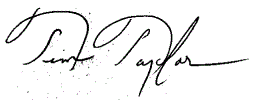 Tim Taylor